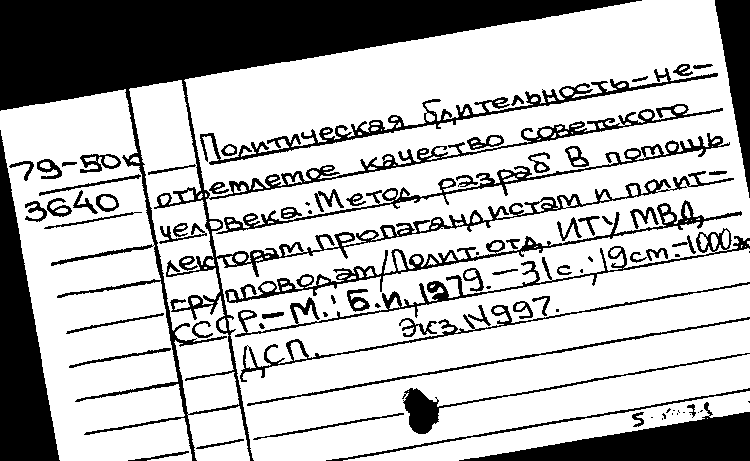 79-50к
3640
Политическая бдительность-не-
отъемлемое качество советского
человека: Метод. разраб. В помощь
лекторам, пропагандистам и полит-
групповодам/Полит. отд. ИТУ МВД
СССР.-М.: Б.и., 1979.-31с.; 19см.-1000эк
ДСП. Экз. N997.